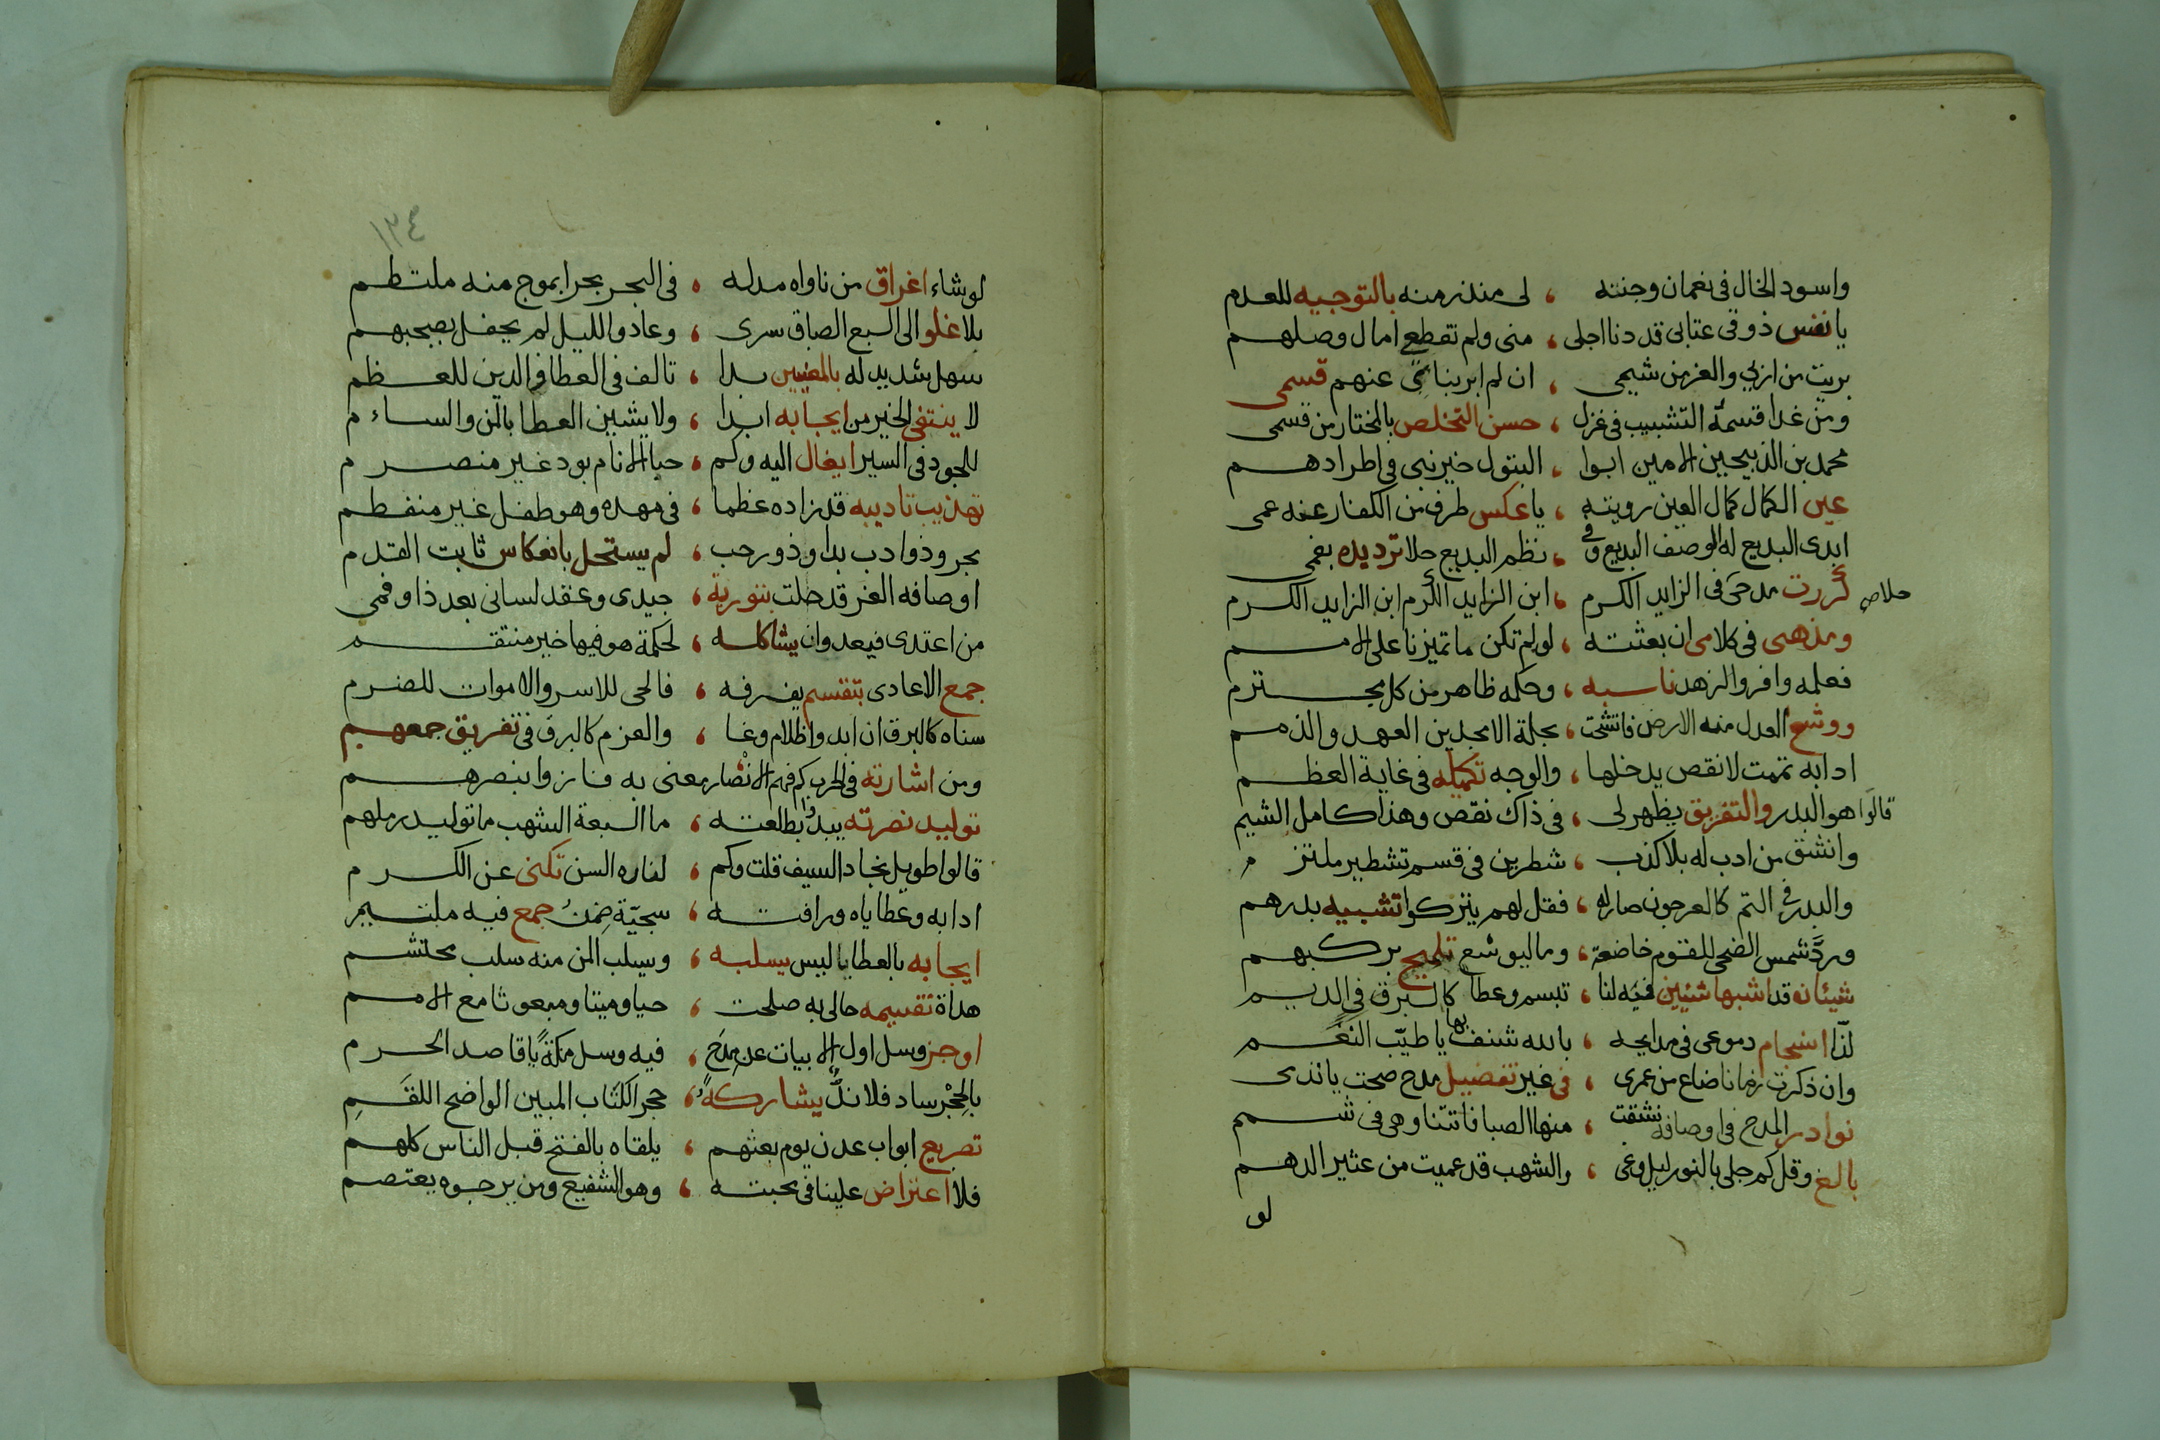 واسود الخال فى نعمان وجنته ، لى منذر منه بالتوجيه للعدم
يا نفس ذوقى عتابى قد دنا اجلى ، منى ولم تقطع امال وصلهم
بريت من ادبي والغر من شيمى ، ان لم ابر بنائى عنهم قسمى
ومن غدا قسمه التشبيب فى غزل ، حسن التخلص بالمختار من قسمى
محمد بن الذبيحين الامين ابوا ، البتول خير نبى فى اطرادهم
عين الكمال كمال العين رويته ، يا عكس طرف من الكفار عنه عمى
ابدى البديع له الوصف البديع وفى ، نظم البديع حلا ترديده بفمى
كررت مدحى فى الزايد الكرم ، ابن الزايد الكرم ابن الزايد الكرم
ومذهبى فى كلامى ان بعثته ، لو لم تكن ما تميزنا على الامم
فعلمه وافر والزهد ناسبه ، وحكمه ظاهر من كل مجترم
ووشع العدل منه الارض فاتشحت ، بحلة الامجدين العهد والذمم
ادابه تممت لا نقص يدخلها ، والوجه تكميله فى غاية العظم
قالوا هو البدر والتفريق يظهر لى ، فى ذاك نقص وهذا كامل الشيم
وانشق من ادب له بلا كذب ، شطرين فى قسم تشطير ملتزم
والبدر فى التم كالعرجون صار له ، فقل لهم يتركوا تشبيه بدرهم
ورد شمس الضحى للقوم خاضعة ، وما ليوشع تلميح بركبهم
شيئان قد اشبها شيئين فيه لنا ، تبسم وعطا كالبرق فى الديم
لذا انسجام دموعى فى مدايحه ، بالله شنف بها يا طيب النغم
وان ذكرت زمانا ضاع من عمرى ، فى غير تفضيل مدح صحت يا ندمى
نوادر المدح فى اوصافه نشقت ، منها الصبا فاتتنا وهى فى شمم
بالغ وقل كم جلى بالنور ليل وغى ، والشهب قد عميت من عثير الدهم
لو
١٣٤
لو شاء اغراق من ناواه مد له ، فى البحر بحرا بموج منه ملتطم
بلا غلو الى السبع الطباق سرى ، وعاد والليل لم يجفل بصبحهم
سهل شديد له بالمعنيين بدا ، تالف فى العطا والدين للعظم
لا ينتفى الخير من ايجابه ابدا ، ولا يشين العطا بالمن والساءم
للجود فى السير ايغال اليه وكم ، حبا الانام بود غير منصرم
تهذيب تاديبه قد زاده عظما ، فى مهده وهو طفل غير منفطم
بحر وذو ادب بدا وذو رحب ، لم يستحل بانعكاس ثابت القدم
اوصافه الغر قد حلت بتورية ، جيدى وعقد لسانى بعد ذا وفمى
من اعتدى فبعدوان يشاكله ، لحكمة هو فيها خير منتقم
جمع الاعادى بتقسيم يفرقه ، فالحى للاسر والاموات للضرم
سناه كالبرق ان ابدوا ظلام وغا ، والعزم كالبرق فى تفريق جمعهم
ومن اشارته فى الحرب كم فهم الانصار معنى به فازوا بنصرهم
توليد نصرته يبدو بطلعته ، ما السبعة الشهب ما توليد رملهم
قالوا طويل نجاد السيف قلت وكم ، لناره السن تكنى عن الكرم
ادابه وعطاياه ورافته ، سجية ضمن جمع فيه ملتيم
ايجابه بالعطايا ليس يسلبه ، ويسلب المن منه سلب محتشم
هداة تقسيمه حالى به صلحت ، حيا وميتا ومبعوثا مع الامم
اوجز وسل اول الابيات عن مدح ، فيه وسل مكة يا قاصد الحرم
بالحجر ساد فلا ند يشاركه ، حجر الكتاب المبين الواضح اللقم
تصريع ابواب عدن يوم بعثهم ، يلقاه بالفتح قبل الناس كلهم
فلا اعتراض علينا فى محبته ، وهو الشفيع ومن يرجوه يعتصم